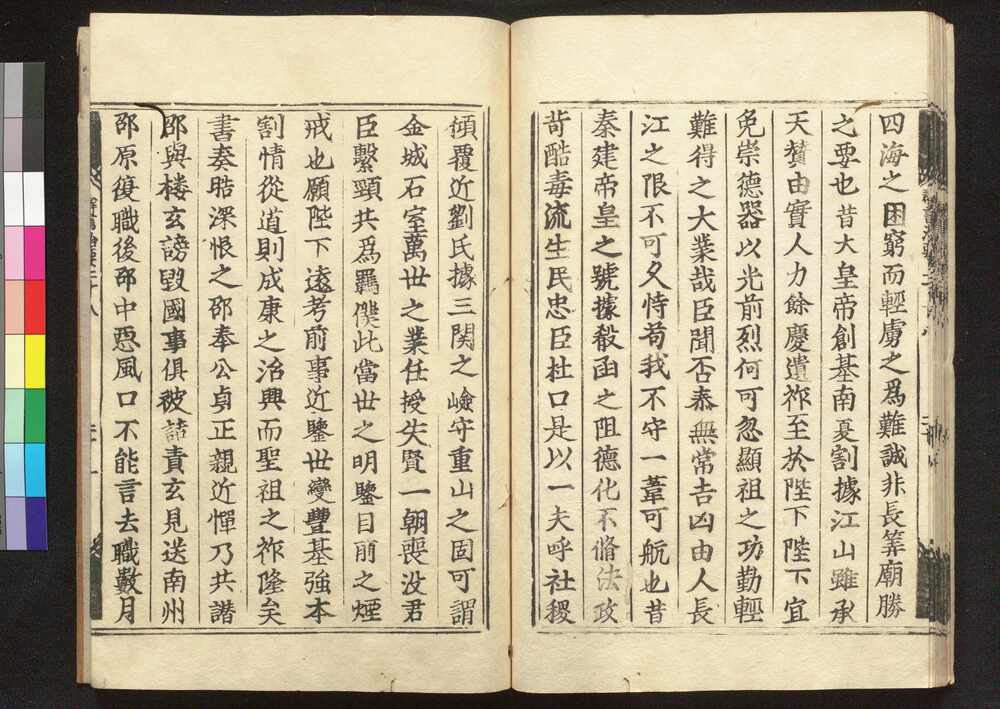 四海之困窮而輕虜之爲難誠非長筭廟勝
之要也昔大皇帝創基南夏割據江山雖承
天賛由實人力餘慶遺祚至於陛下陛下宜
免崇德器以光前烈何可忽顯祖之功勤輕
難得之大業哉臣聞否泰無常吉凶由人長
江之限不可久恃苟我不守一葦可航也昔
秦建帝皇之號據殽函之阻德化不脩法政
苛酷毒流生民忠臣杜口是以一夫呼社稷
傾覆近劉氏據三関之嶮守重山之固可謂
金城石室萬世之業任授失賢一朝喪没君
臣繫頸共爲羈僕此當世之明鑒目前之煙
戒也願陛下遠考前事近鑒世變豐基強本
割情從道則成康之治興而聖祖之祚隆矣
書奏晧深恨之邵奉公貞正親近憚乃共譖
邵與楼玄謗毀國事俱彼詰責玄見送南州
邵原復職後邵中惡風口不能言去職數月